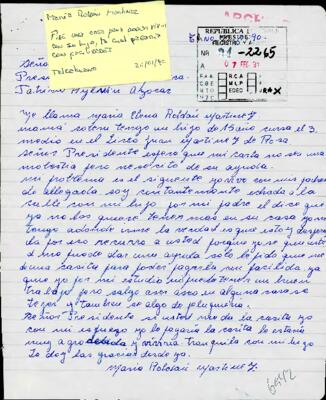 Maria Roldán Martinez
Pide una casa para poder vivir
con su hijo, la cual pagaría
con facilidades
Talcahuano
ARCHIVO
REPUBLICA
PRESIDENCIA
REGISTRO Y A
NR 91-2265
A 07 FEB 91
RCA
MLP
EDEC
Seño
Pres
Patricio Aylwin Azocar
Me llama maria Elena Roldan Martinez
mamá soltera tengo un hijo de 15 año cursa el 3
medio en el Liceo Juan Martinez de Rosa
Señor Presidente espero que mi carta no sea una
molestia pero necesito de su ayuda.
mi problema es el siguiente yo vivo con mis padres
de allegada, soy constantemente echada a la
calle con mi hijo por mi padre el dice que
ya no los quiere tener mas en su casa yo no
tengo adonde irme la verdad es que estoy desespe
rada por eso recurro a usted porque yo se que usted
si me puede dar una ayuda solo le pido que me
de una casita para poder pagarla con facilidad ya
que yo por mi estudio no puedo tener un buen
trabajo pero salgo aser aseo en algunas casas
tejer y tambien se algo de peluqueria.
Señor Presidente si usted me da la casita yo
con mi esfuerzo yo le pagaria la casita le estaria
muy agradecida y viviria tranquila con mi hijo
Le doy las gracias desde ya.
Maria Roldan Martinez.